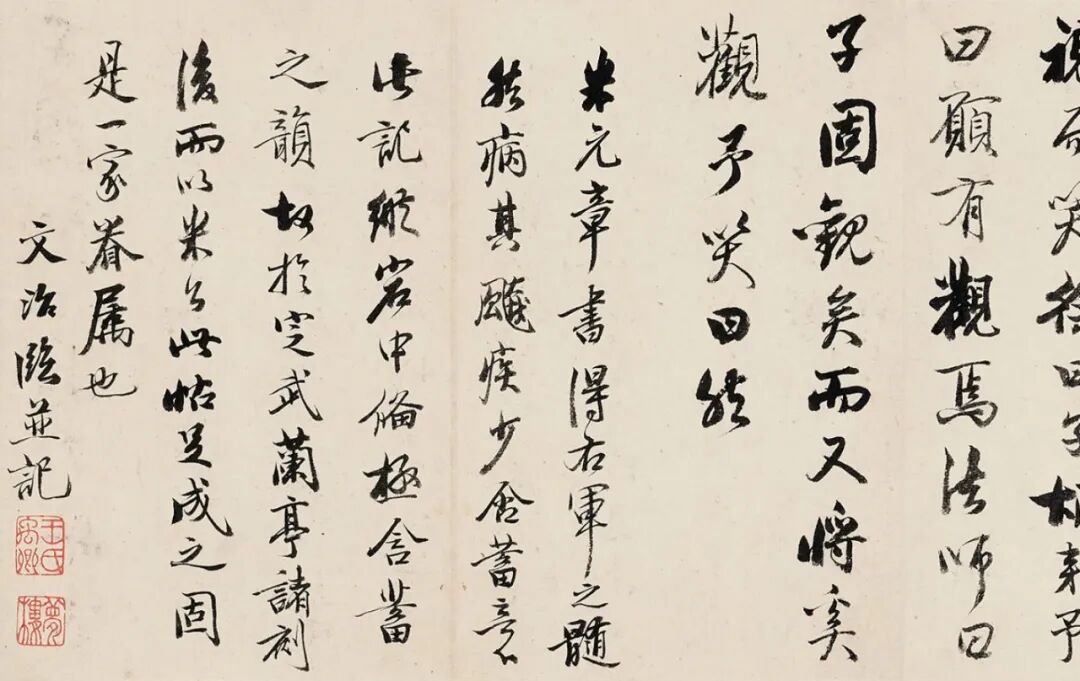 視而笑徐曰子胡来予
曰願有觀焉法师曰
子固觀矣而又將奚
觀予笑曰然
米元章書得右軍之髓
然病其飈疾少含蓄意
此記縱宕中倫極含蓄
之韻故於定武蘭亭諸刻
後而以米公此帖足成之固
是一家眷属也
文治臨並記
王氏禹卿
夢樓